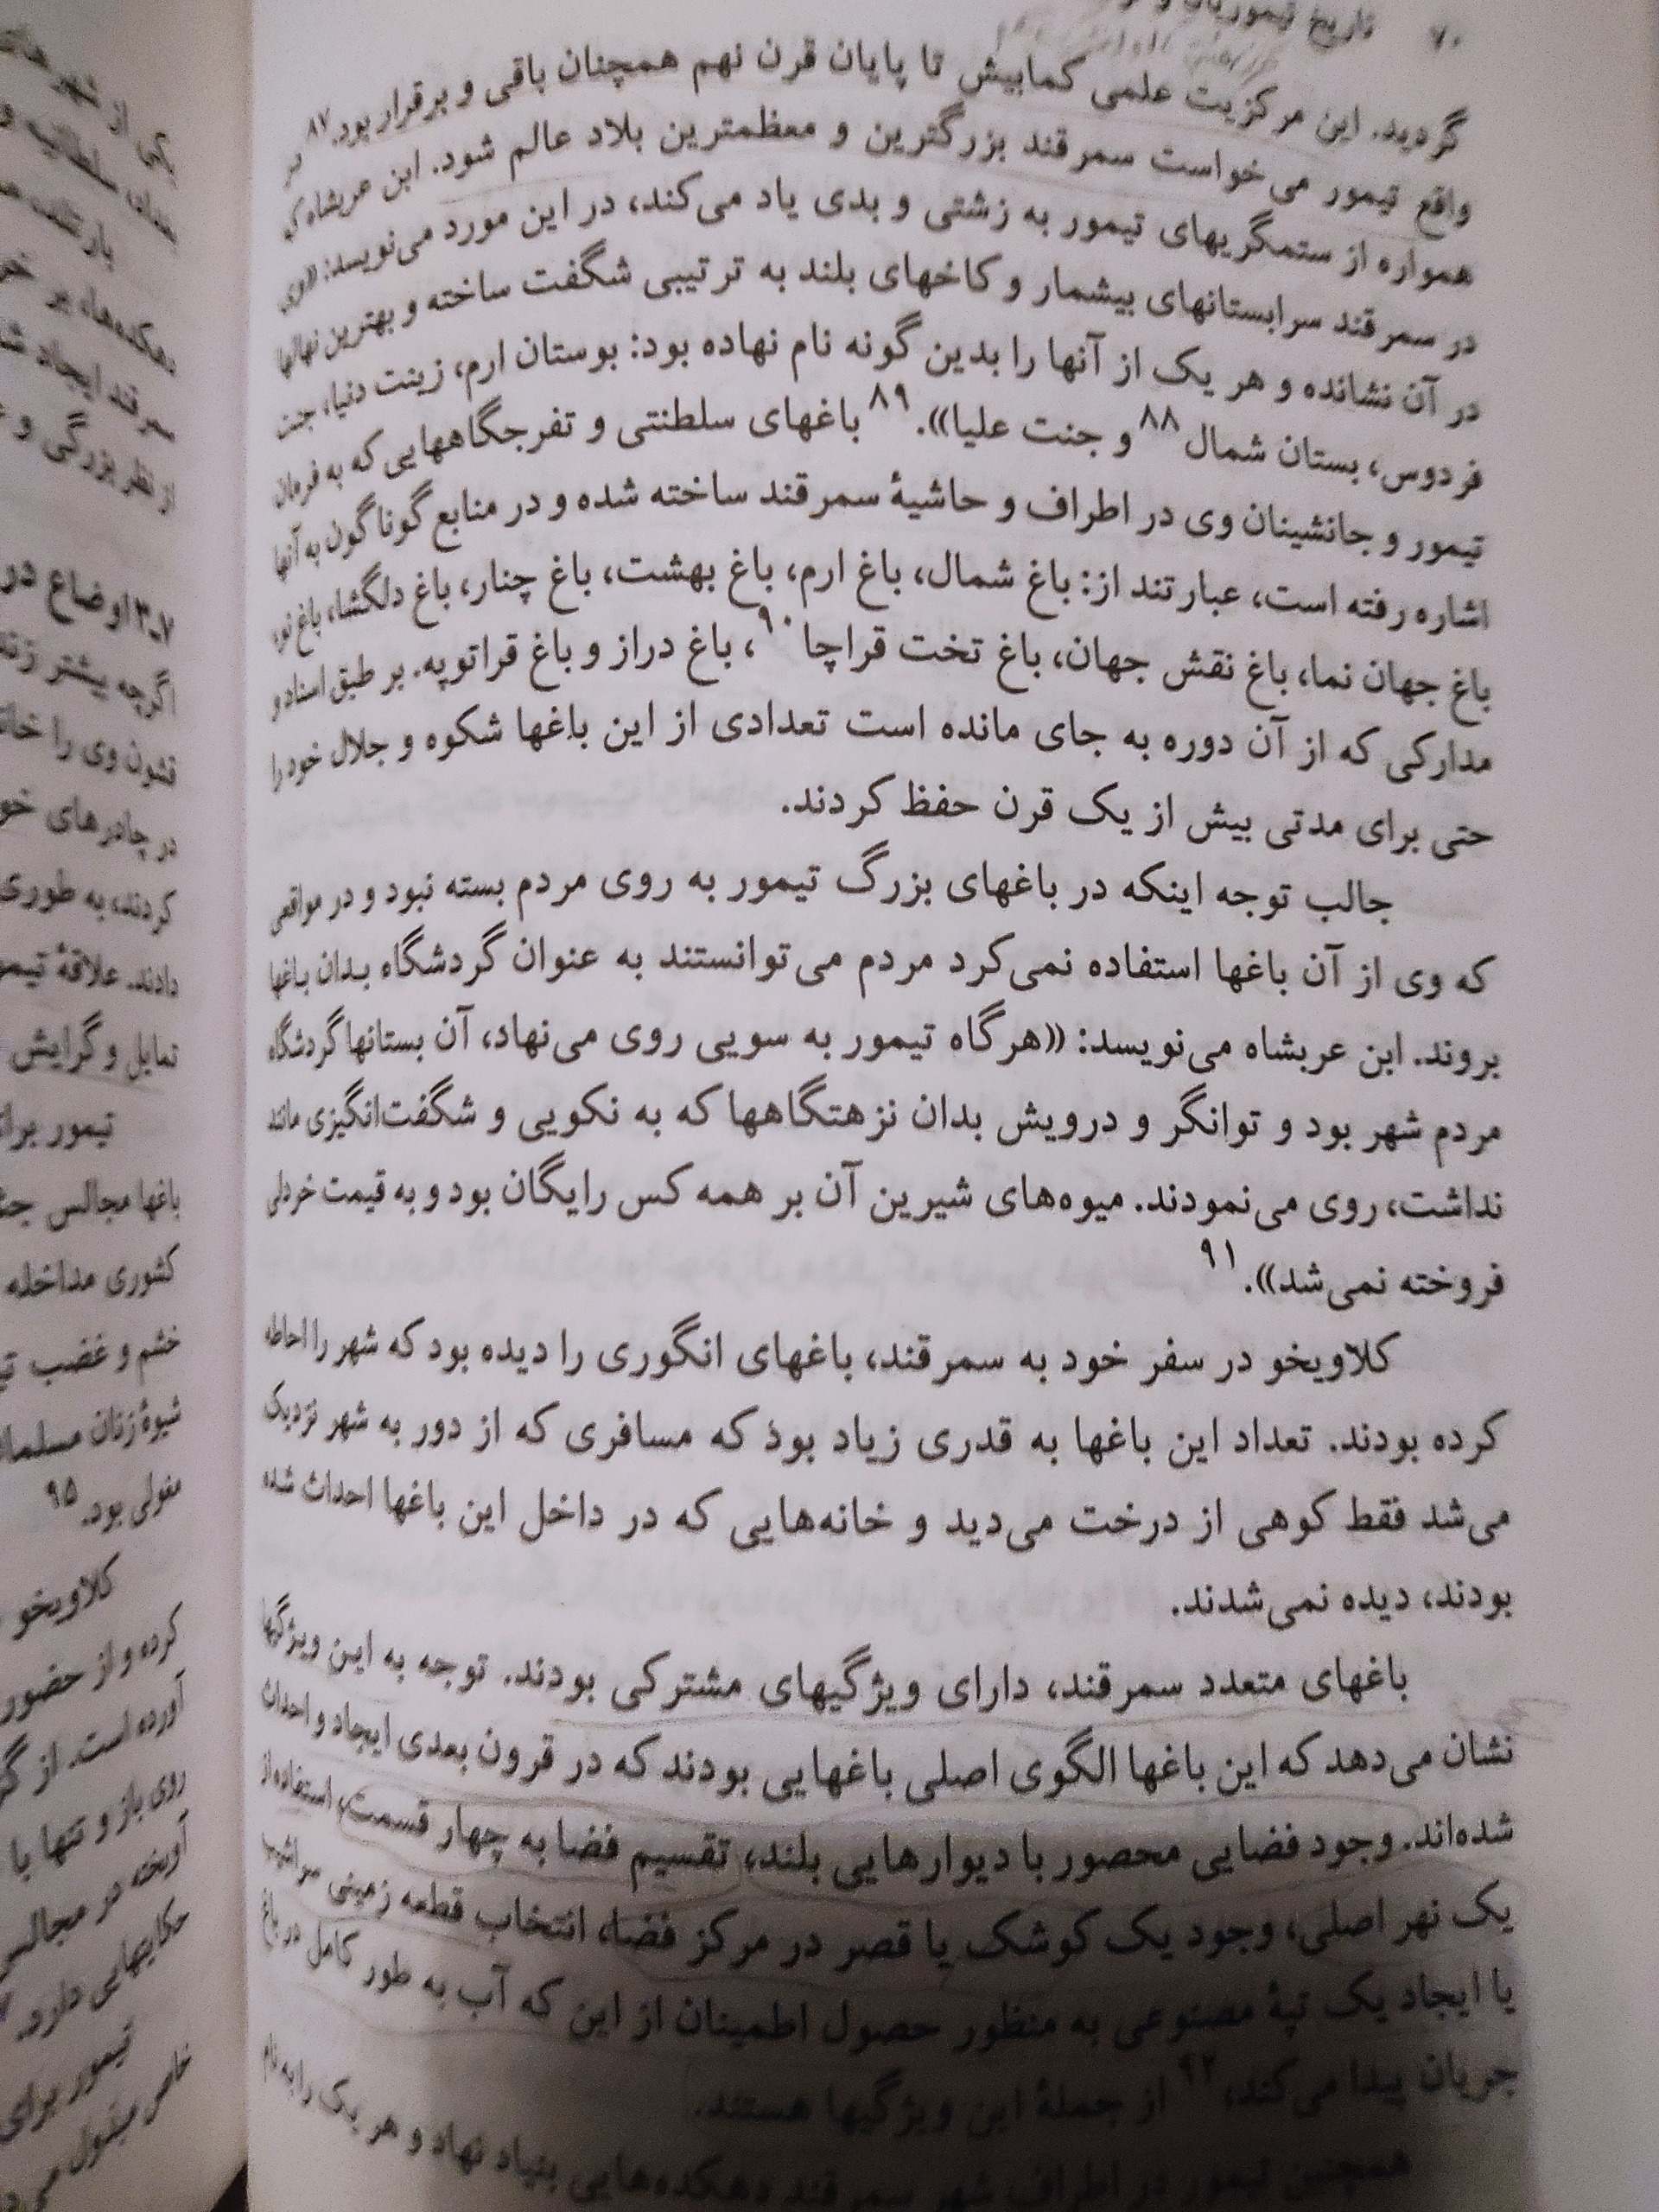 ۷۰ تاریخ تیموریان و
گردید. این مرکزیت علمی کمابیش تا پایان قرن نهم همچنان باقی و برقرار بود.۸۷ در
واقع تیمور می‌خواست سمرقند بزرگترین و معظمترین بلاد عالم شود. ابن عربشاه که
همواره از ستمگریهای تیمور به زشتی و بدی یاد می‌کند، در این مورد می‌نویسد: «وی
در سمرقند سرابستانهای بیشمار و کاخهای بلند به ترتیبی شگفت ساخته و بهترین نهالها
در آن نشانده و هر یک از آنها را بدین گونه نام نهاده بود: بوستان ارم، زینت دنیا، جنت
فردوس، بستان شمال۸۸ و جنت علیا».۸۹ باغهای سلطنتی و تفرجگاههایی که به فرمان
تیمور و جانشینان وی در اطراف و حاشیهٔ سمرقند ساخته شده و در منابع گوناگون به آنها
اشاره رفته است، عبارتند از: باغ شمال، باغ ارم، باغ بهشت، باغ چنار، باغ دلگشا، باغ نو،
باغ جهان نما، باغ نقش جهان، باغ تخت قراچا۹۰، باغ دراز و باغ قراتوپه. بر طبق اسناد و
مدارکی که از آن دوره به جای مانده است تعدادی از این باغها شکوه و جلال خود را
حتی برای مدتی بیش از یک قرن حفظ کردند.
جالب توجه اینکه در باغهای بزرگ تیمور به روی مردم بسته نبود و در مواقعی
که وی از آن باغها استفاده نمی‌کرد مردم می‌توانستند به عنوان گردشگاه بدان باغها
بروند. ابن عربشاه می‌نویسد: «هرگاه تیمور به سویی روی می‌نهاد، آن بستانها گردشگاه
مردم شهر بود و توانگر و درویش بدان نزهتگاهها که به نکویی و شگفت‌انگیزی مانند
نداشت، روی می‌نمودند. میوه‌های شیرین آن بر همه کس رایگان بود و به قیمت خردلی
فروخته نمی‌شد».۹۱
کلاویخو در سفر خود به سمرقند، باغهای انگوری را دیده بود که شهر را احاطه
کرده بودند. تعداد این باغها به قدری زیاد بود که مسافری که از دور به شهر نزدیک
می‌شد فقط کوهی از درخت می‌دید و خانه‌هایی که در داخل این باغها احداث شده
بودند، دیده نمی‌شدند.
باغهای متعدد سمرقند، دارای ویژگیهای مشترکی بودند. توجه به این ویژگیها
نشان می‌دهد که این باغها الگوی اصلی باغهایی بودند که در قرون بعدی ایجاد و احداث
شده‌اند. وجود فضایی محصور با دیوارهایی بلند، تقسیم فضا به چهار قسمت، استفاده از
یک نهر اصلی، وجود یک کوشک یا قصر در مرکز فضا، انتخاب قطعه زمینی سراشیب
یا ایجاد یک تپهٔ مصنوعی به منظور حصول اطمینان از این که آب به طور کامل در باغ
جریان پیدا می‌کند،۹۲ از جملهٔ این ویژگیها هستند.
همچنین تیمور در اطراف شهر سمرقند دهکده‌هایی بنیاد نهاد و هر یک را به نام
یکی از شهر
بار
دهکده‌ها، بر
سمرقند ایجاد
از نظر بزرگی و
۷ـ۳ اوضاع در
اگرچه بیشتر
قشون وی را
در چادرهای
کردند، به طوری
دادند. علاقهٔ
تمایل و گرایش
تیمور
باغها مجالس
کشوری مداخله
خشم و غضب
شیوهٔ زنان
مغولی بود.۹۵
کلاویخو
کرده و از حضور
آورده است. از
روی باز و تنها با
آویخته در مجالس
حکایتهایی دارد.
تیمور برای